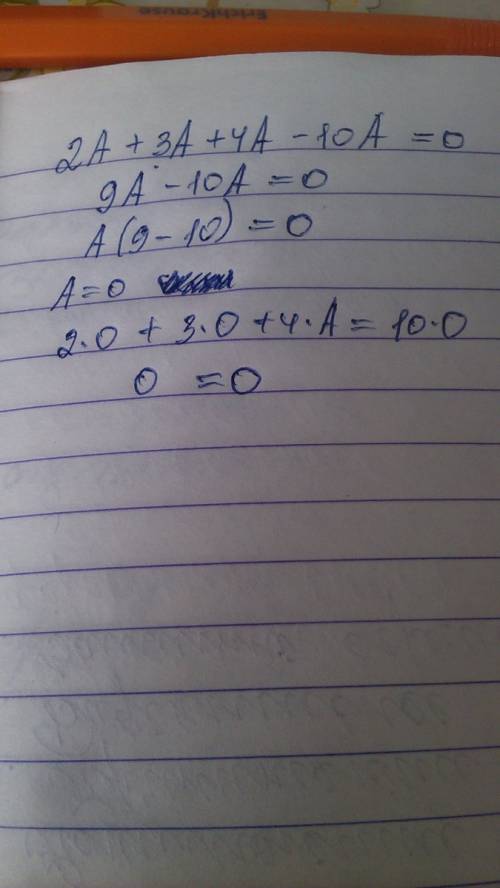 ErichKrause
2A + 3A + 4A - 10A = 0
9A - 10A = 0
A(9 - 10) = 0
A = 0
2·0 + 3·0 + 4·A = 10·0
0 = 0